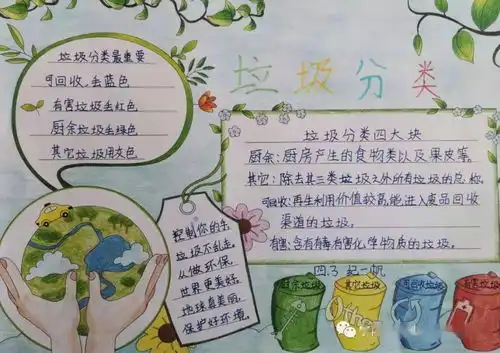 垃圾分类
垃圾分类最重要
可回收,丢蓝色
有害垃圾丢红色
厨余垃圾丢绿色
其它垃圾用灰色
垃圾分类四大块
厨余:厨房产生的食物类以及果皮等。
其它:除去其三类垃圾之外所有垃圾的总称
可回收:再生利用价值较高能进入废品回收
渠道的垃圾。
有害:含有毒有害化学物质的垃圾。
控制你的手
垃圾不乱走。
从做环保
世界更美好。
地球喜美丽,
保护好环境
四.3 纪一帆
厨余垃圾
其它垃圾
可回收垃圾
有害垃圾